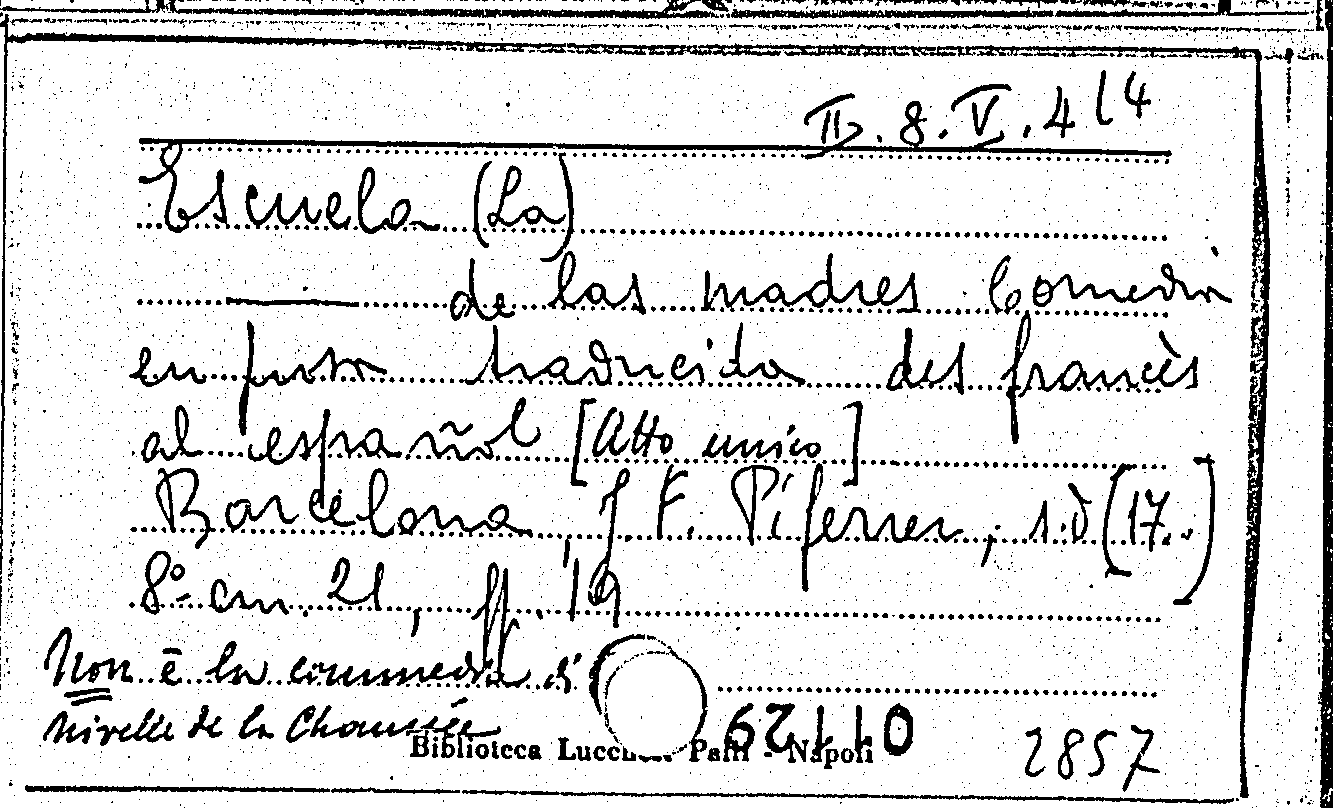 II. 8. V. 4 14
Escuela (La)
de las madres Comedia
en prosa traducida des francès
al español [Atto unico]
Barcelona, J. F. Piferrer, s.d (17..)]
8º cm. 21, pp. 19
Non è la commedia di
Nivelle de la Chaussée
Biblioteca Lucchesi Palli - Napoli
2857